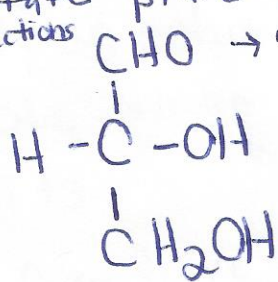 ctions
CHO →
H - C - OH
CH₂OH